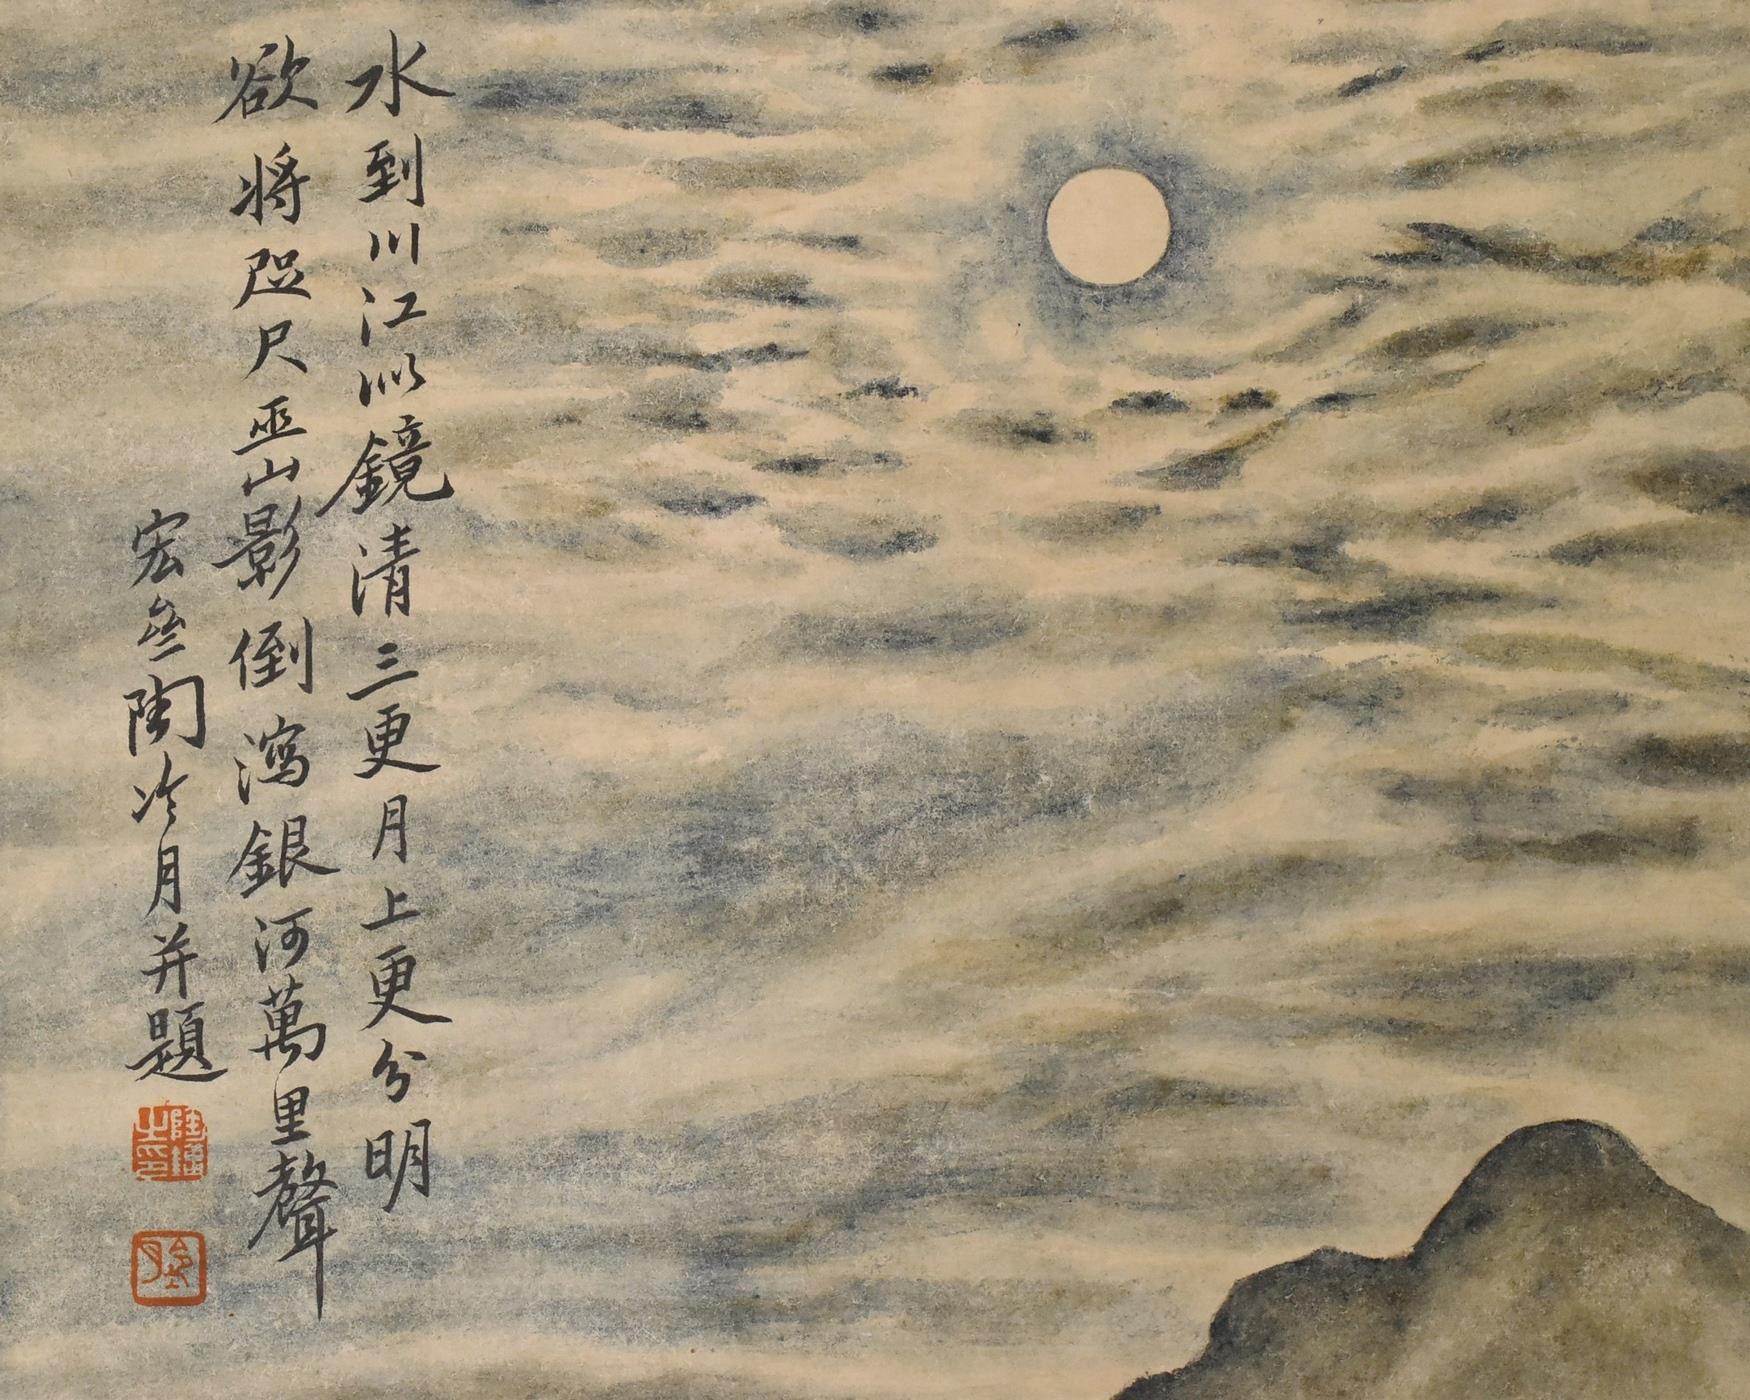 水到川江似鏡清三更月上更分明
欲將咫尺巫山影倒瀉銀河萬里聲
宏叄陶冷月并題
陶鏞之印
冷月